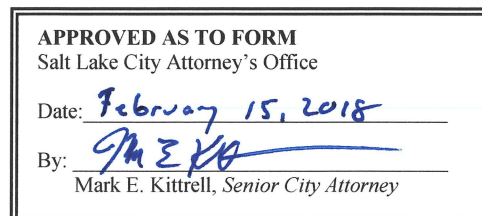 APPROVED AS TO FORM
Salt Lake City Attorney's Office
Date: February 15, 2018
By:
Mark E. Kittrell, Senior City Attorney